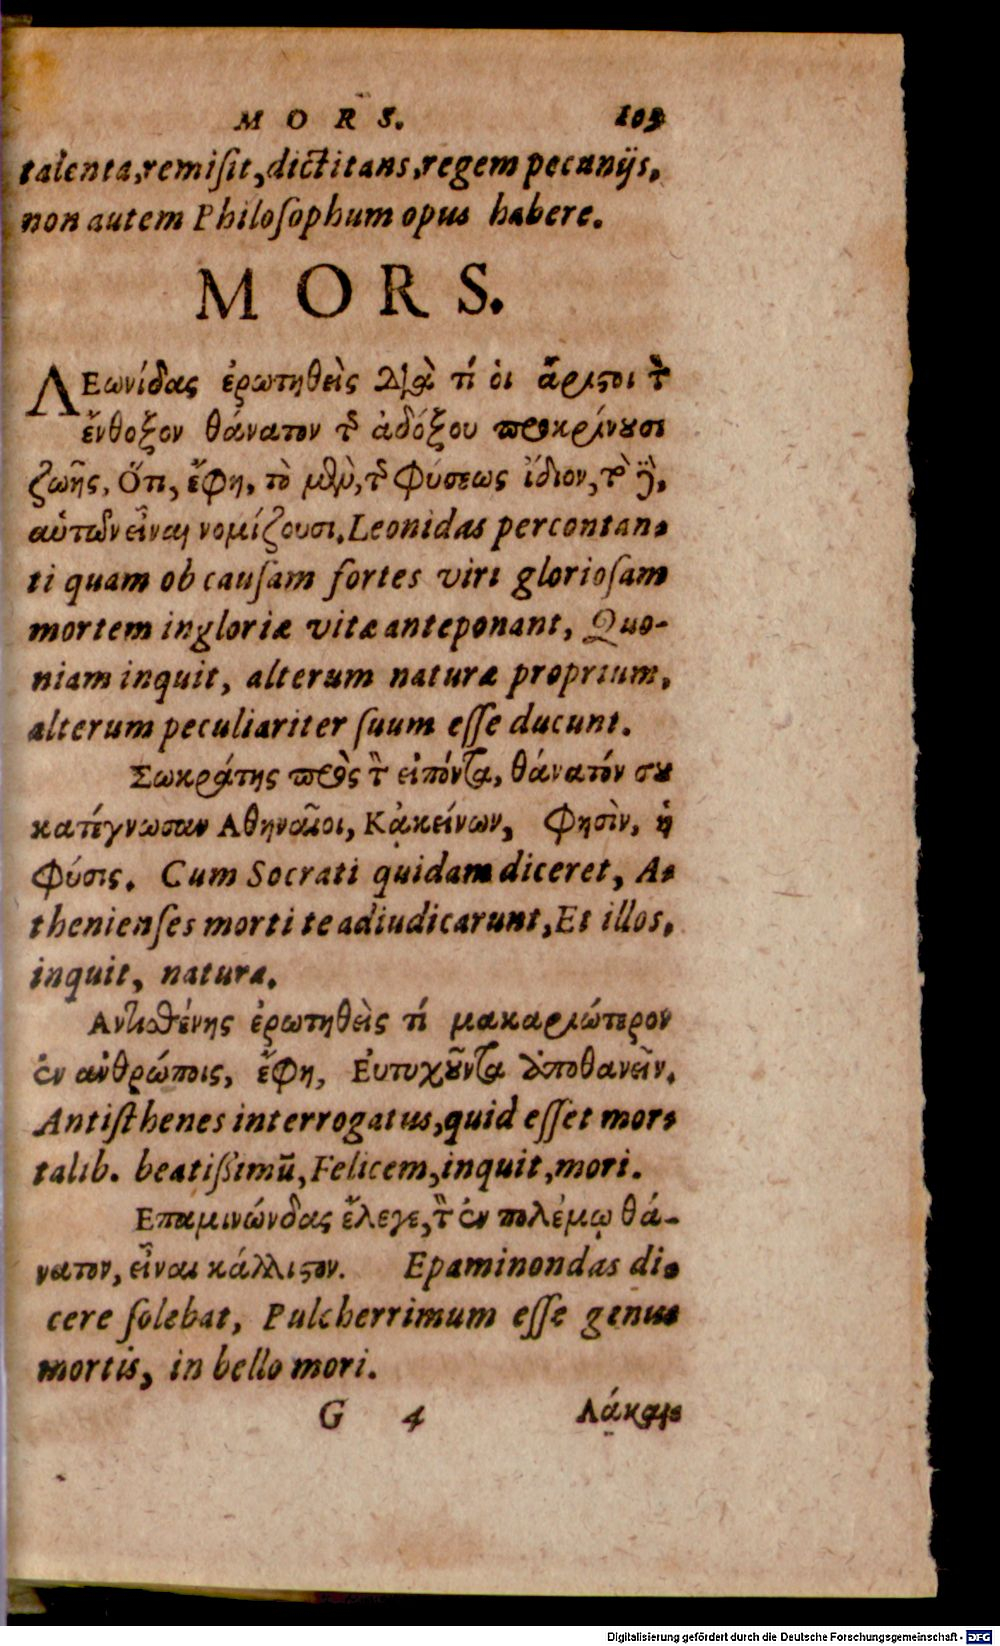 MORS. 103
talenta, remiſit, dictitans, regem pecunijs,
non autem Philoſophum opus habere.
MORS.
ΛΕωνίδας ἐρωτηθεὶς Διὰ τί ὁι ἄριϛοι τ̀
ἔνθοξον θάνατον τ͂ ἀδόξου προκρίνȣσι
ζωῆς, Ὅτι, ἔφη, τὸ μὲν, τ͂ φύσεως ἴδιον, τὸ ȷ̀,
αὑτῶν εἶναι νομίζουσι. Leonidas percontan-
ti quam ob cauſam fortes viri glorioſam
mortem ingloriæ vitæ anteponant, Quo-
niam inquit, alterum naturæ proprium,
alterum peculiariter ſuum eſſe ducunt.
Σωκράτης πρὸς τ̀ εἰπόντα, θάνατόν σȣ
κατέγνωσαν Αθηναῖοι, Κἀκείνων, φησὶν, ἡ
φύσις. Cum Socrati quidam diceret, A-
thenienſes morti te adiudicarunt, Et illos,
inquit, natura.
Αντιϑένης ἐρωτηθεὶς τί μακαριώτερον
ἐν ἀνθρώποις, ἔφη, Εὐτυχȣ͂ντα ἀποθανεῖν.
Antiſthenes interrogatus, quid eſſet mor-
talib. beatißimū, Felicem, inquit, mori.
Επαμινώνδας ἔλεγε, τ̀ ἐν πολέμῳ θά-
νατον, εἶναι κάλλιϛον. Epaminondas di-
cere ſolebat, Pulcherrimum eſſe genus
mortis, in bello mori.
G 4 Λάκαι-
Digitalisierung gefördert durch die Deutsche Forschungsgemeinschaft - DFG